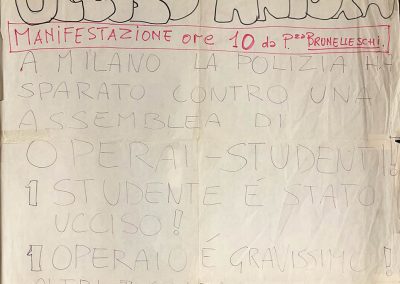 MANIFESTAZIONE ore 10 da P.zza BRUNELLESCHI.
A MILANO LA POLIZIA HA
SPARATO CONTRO UNA
ASSEMBLEA DI
OPERAI-STUDENTI!
1 STUDENTE É STATO
UCCISO!
1 OPERAIO É GRAVISSIMO!